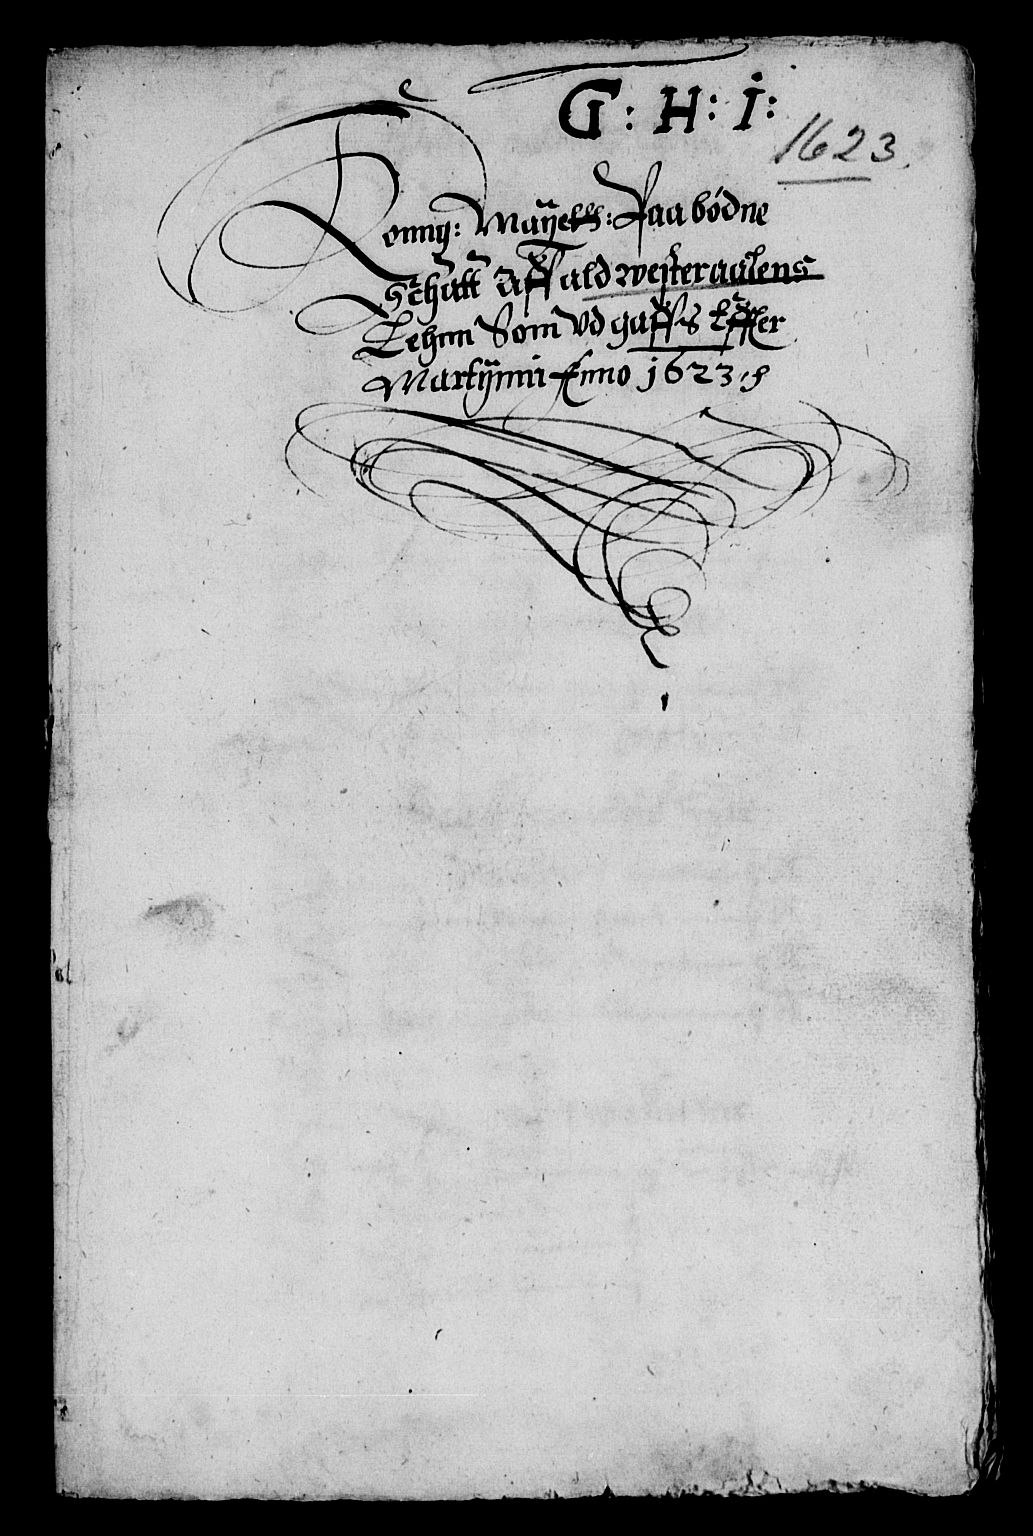 G: H: I:
1623.
Konny: Mayetts: Paabødne
Schatt Aff ald westeraalens
Lehnn Som Vd gaffs Effter
Martynni Anno 1623